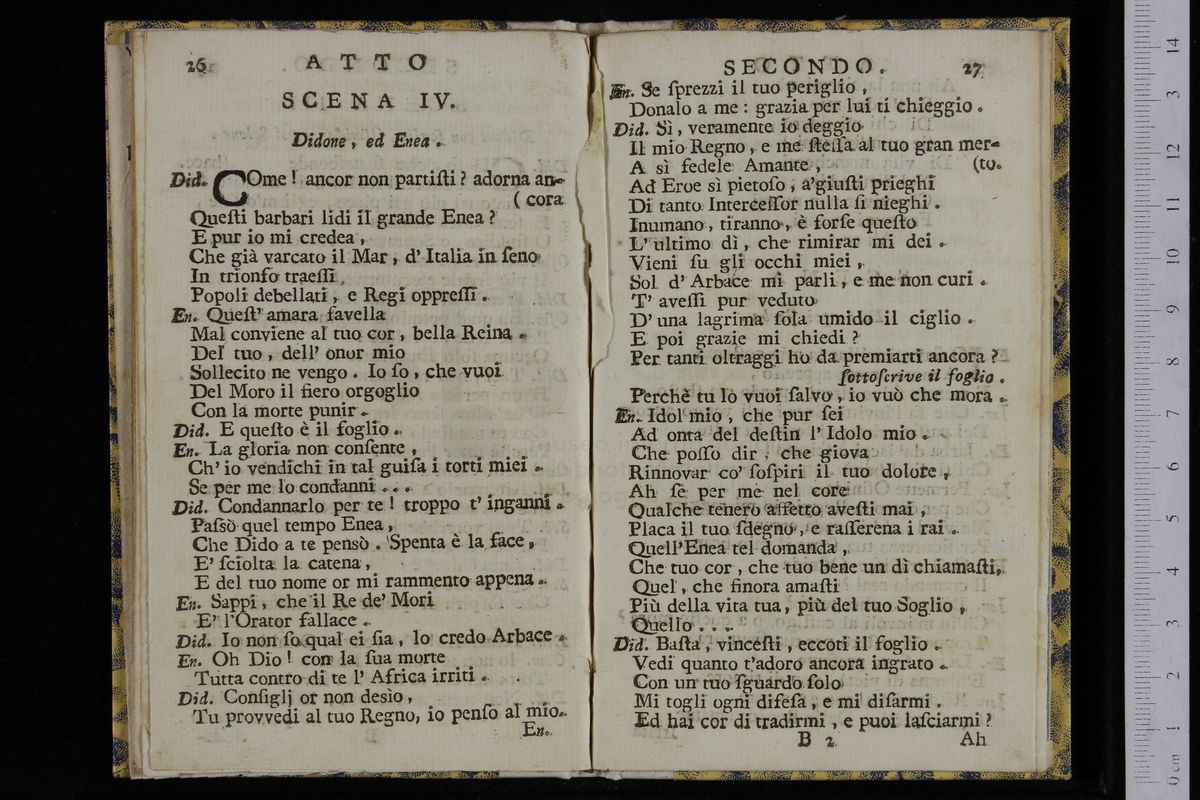 26
ATTO
SCENA IV.
Didone, ed Enea.
Did. COme! ancor non partiſti? adorna an-
(cora
Queſti barbari lidi il grande Enea?
E pur io mi credea,
Che già varcato il Mar, d' Italia in ſeno
In trionfo traeſſi
Popoli debellati, e Regi oppreſſi.
En. Queſt' amara favella
Mal conviene al tuo cor, bella Reina.
Del tuo, dell' onor mio
Sollecito ne vengo. Io ſo, che vuoi
Del Moro il fiero orgoglio
Con la morte punir.
Did. E queſto è il foglio.
En. La gloria non conſente,
Ch' io vendichi in tal guiſa i torti miei.
Se per me lo condanni...
Did. Condannarlo per te! troppo t' inganni.
Paſsò quel tempo Enea,
Che Dido a te pensò. Spenta è la face,
E' ſciolta la catena,
E del tuo nome or mi rammento appena.
En. Sappi, che il Re de' Mori
E' l'Orator fallace.
Did. Io non ſo qual ei ſia, lo credo Arbace.
En. Oh Dio! con la ſua morte
Tutta contro di te l' Africa irriti.
Did. Conſiglj or non desìo,
Tu provvedi al tuo Regno, io penſo al mio.
En.
SECONDO.
27
En. Se ſprezzi il tuo periglio,
Donalo a me: grazia per lui ti chieggio.
Did. Sì, veramente io deggio
Il mio Regno, e me ſteſſa al tuo gran mer-
A sì fedele Amante,
(to.
Ad Eroe sì pietoſo, a'giuſti prieghi
Di tanto Interceſſor nulla ſi nieghi.
Inumano, tiranno, è forſe queſto
L' ultimo dì, che rimirar mi dei.
Vieni ſu gli occhi miei,
Sol d' Arbace mi parli, e me non curi.
T' aveſſi pur veduto
D' una lagrima ſola umido il ciglio.
E poi grazie mi chiedi?
Per tanti oltraggi ho da premiarti ancora?
ſottoſcrive il foglio.
Perchè tu lo vuoi ſalvo, io vuò che mora.
En. Idol mio, che pur ſei
Ad onta del deſtin l' Idolo mio.
Che poſſo dir, che giova
Rinnovar co' ſoſpiri il tuo dolore,
Ah ſe per me nel core
Qualche tenero affetto aveſti mai,
Placa il tuo ſdegno, e raſſerena i rai.
Quell'Enea tel domanda,
Che tuo cor, che tuo bene un dì chiamaſti,
Quel, che finora amaſti
Più della vita tua, più del tuo Soglio,
Quello...
Did. Baſta, vinceſti, eccoti il foglio.
Vedi quanto t'adoro ancora ingrato.
Con un tuo ſguardo ſolo
Mi togli ogni difeſa, e mi diſarmi.
Ed hai cor di tradirmi, e puoi laſciarmi?
B 2
Ah
0 cm 1 2 3 4 5 6 7 8 9 10 11 12 3 14